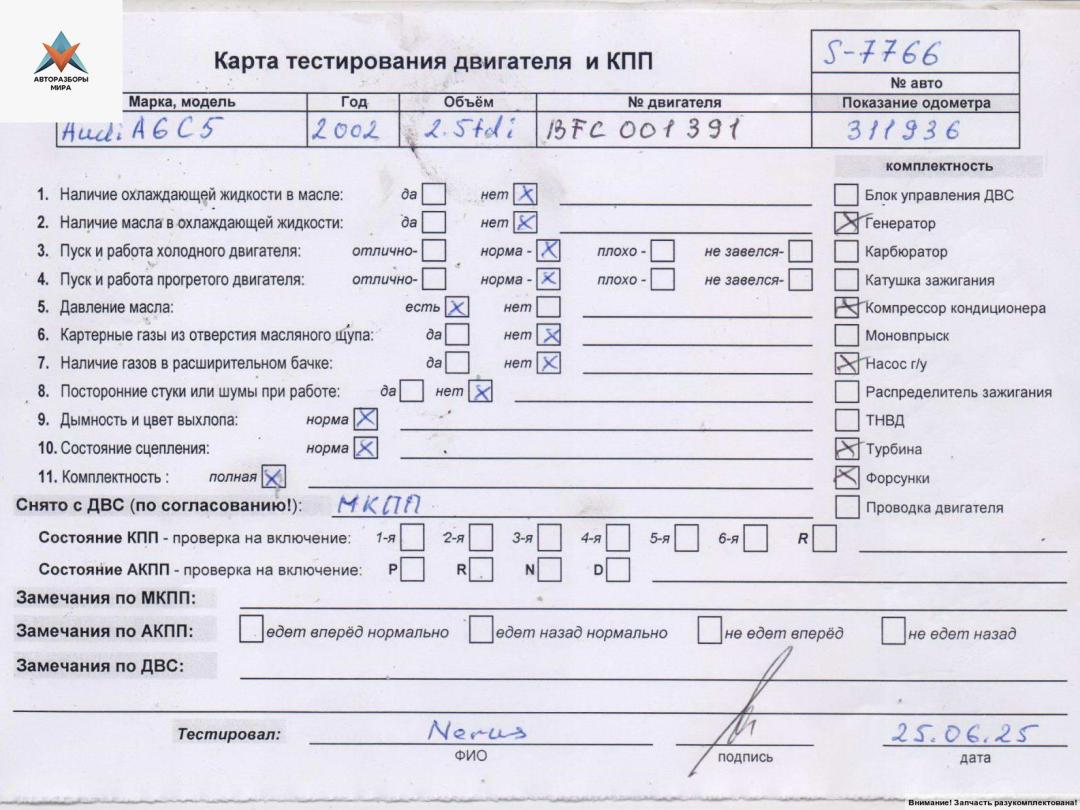 АВТОРАЗБОРЫ
МИРА
Карта тестирования двигателя и КПП
S-7766
№ авто
Марка, модель Год Объём № двигателя Показание одометра
Audi A6C5 2002 2.5tdi BFC 001391 311936
комплектность
1. Наличие охлаждающей жидкости в масле: да нет X Блок управления ДВС
2. Наличие масла в охлаждающей жидкости: да нет X X Генератор
3. Пуск и работа холодного двигателя: отлично- норма - X плохо - не завелся- Карбюратор
4. Пуск и работа прогретого двигателя: отлично- норма - X плохо - не завелся- Катушка зажигания
5. Давление масла: есть X нет X Компрессор кондиционера
6. Картерные газы из отверстия масляного щупа: да нет X Моновпрыск
7. Наличие газов в расширительном бачке: да нет X X Насос г/у
8. Посторонние стуки или шумы при работе: да нет X Распределитель зажигания
9. Дымность и цвет выхлопа: норма X ТНВД
10. Состояние сцепления: норма X X Турбина
11. Комплектность : полная X X Форсунки
Снято с ДВС (по согласованию!): МКПП Проводка двигателя
Состояние КПП - проверка на включение: 1-я 2-я 3-я 4-я 5-я 6-я R
Состояние АКПП - проверка на включение: P R N D
Замечания по МКПП:
Замечания по АКПП: едет вперёд нормально едет назад нормально не едет вперёд не едет назад
Замечания по ДВС:
Тестировал: Nerus 25.06.25
ФИО подпись дата
Внимание! Запчасть разукомплектована!